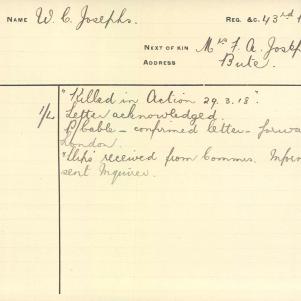 NAME W. C. Josephs. REG. &C. 43rd
NEXT OF KIN Mrs F. A. Josep
ADDRESS Bute.
"Killed in Action 29.3.18".
1/L Letter acknowledged.
P/Cable - confirmed letter - forwa
London.
received from Commrs. Inform
sent Inquirer.